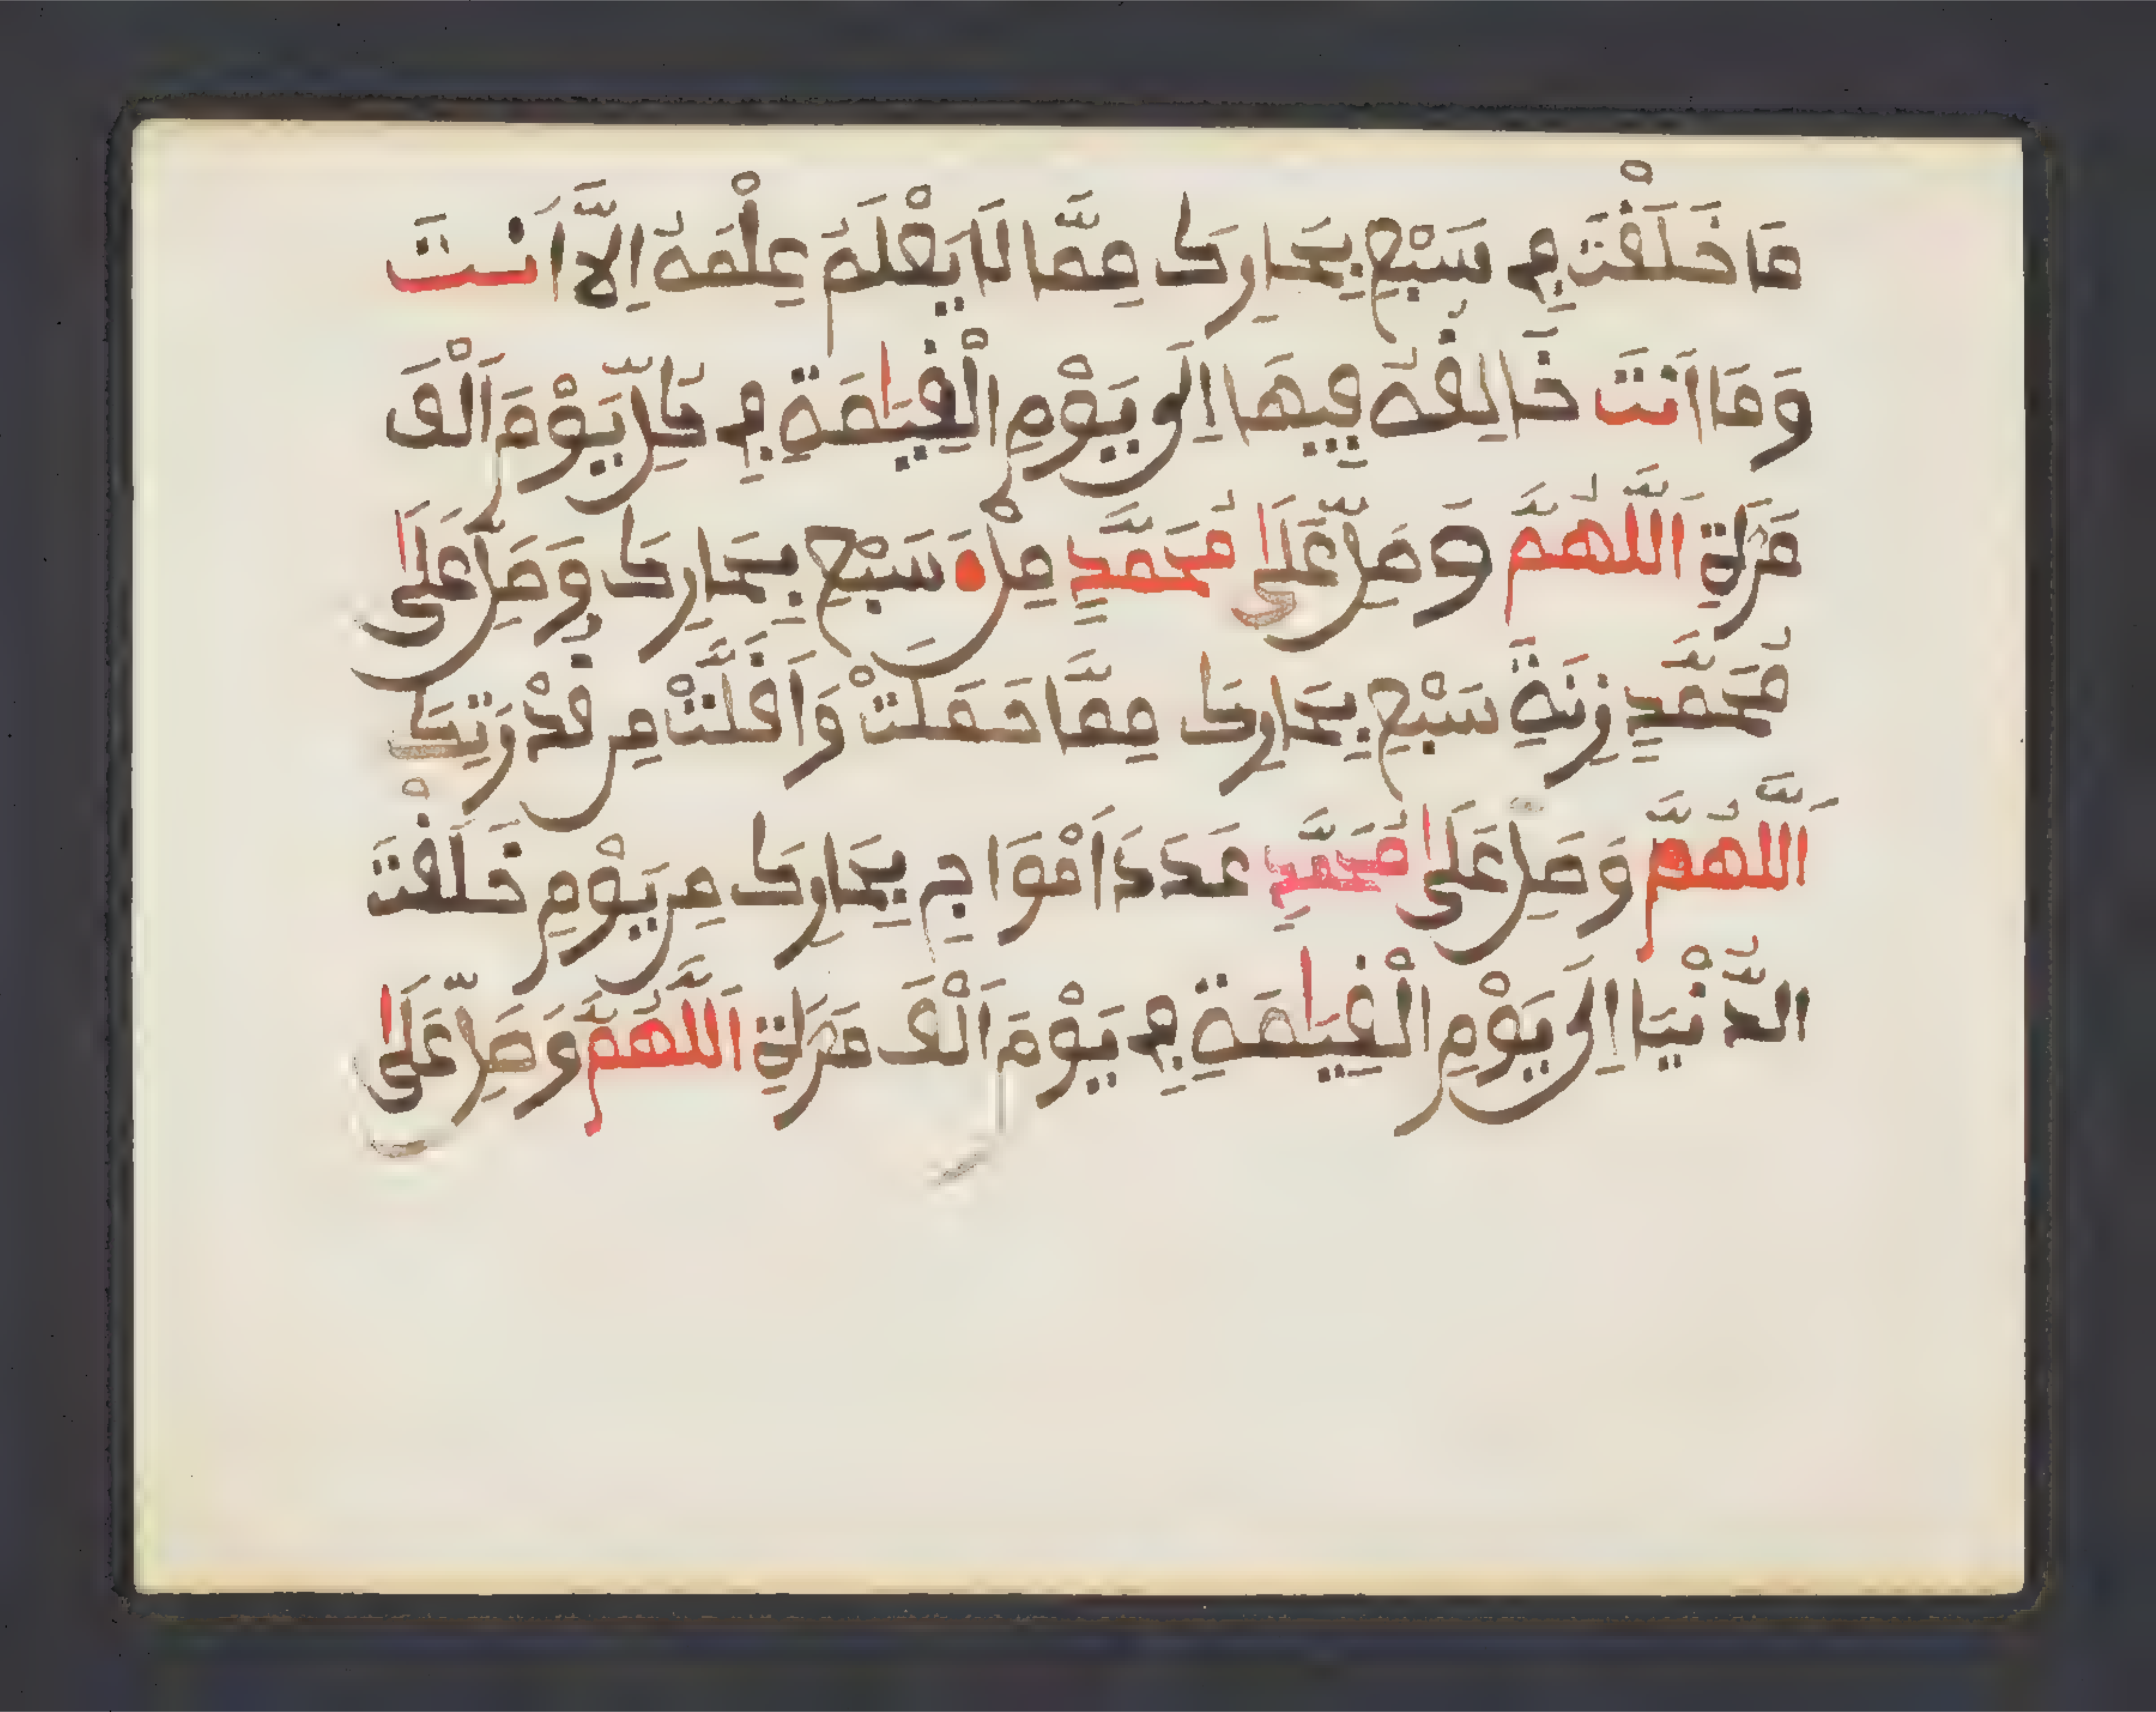 مَا خَلَقْتَ فِي سَبْعِ بِحَارِكَ مِمَّا لَا يَعْلَمُ عِلْمَهُ إِلَّا أَنْتَ
وَمَا أَنْتَ خَالِقُهُ فِيهَا إِلَى يَوْمِ الْقِيَٰمَةِ فِي كُلِّ يَوْمٍ أَلْفَ
مَرَّةٍ اَللَّهُمَّ وَصَلِّ عَلَىٰ مُحَمَّدٍ مِلْءَ سَبْعِ بِحَارِكَ وَصَلِّ عَلَىٰ
مُحَمَّدٍ زِنَةَ سَبْعِ بِحَارِكَ مِمَّا حَمَلَتْ وَأَقَلَّتْ مِن قُدْرَتِكَ
اَللَّهُمَّ وَصَلِّ عَلَىٰ مُحَمَّدٍ عَدَدَ أَمْوَاجِ بِحَارِكَ مِن يَوْمِ خَلَقْتَ
الدُّنْيَا إِلَى يَوْمِ الْقِيَٰمَةِ فِي يَوْمٍ أَلْفَ مَرَّةٍ اَللَّهُمَّ وَصَلِّ عَلَىٰ